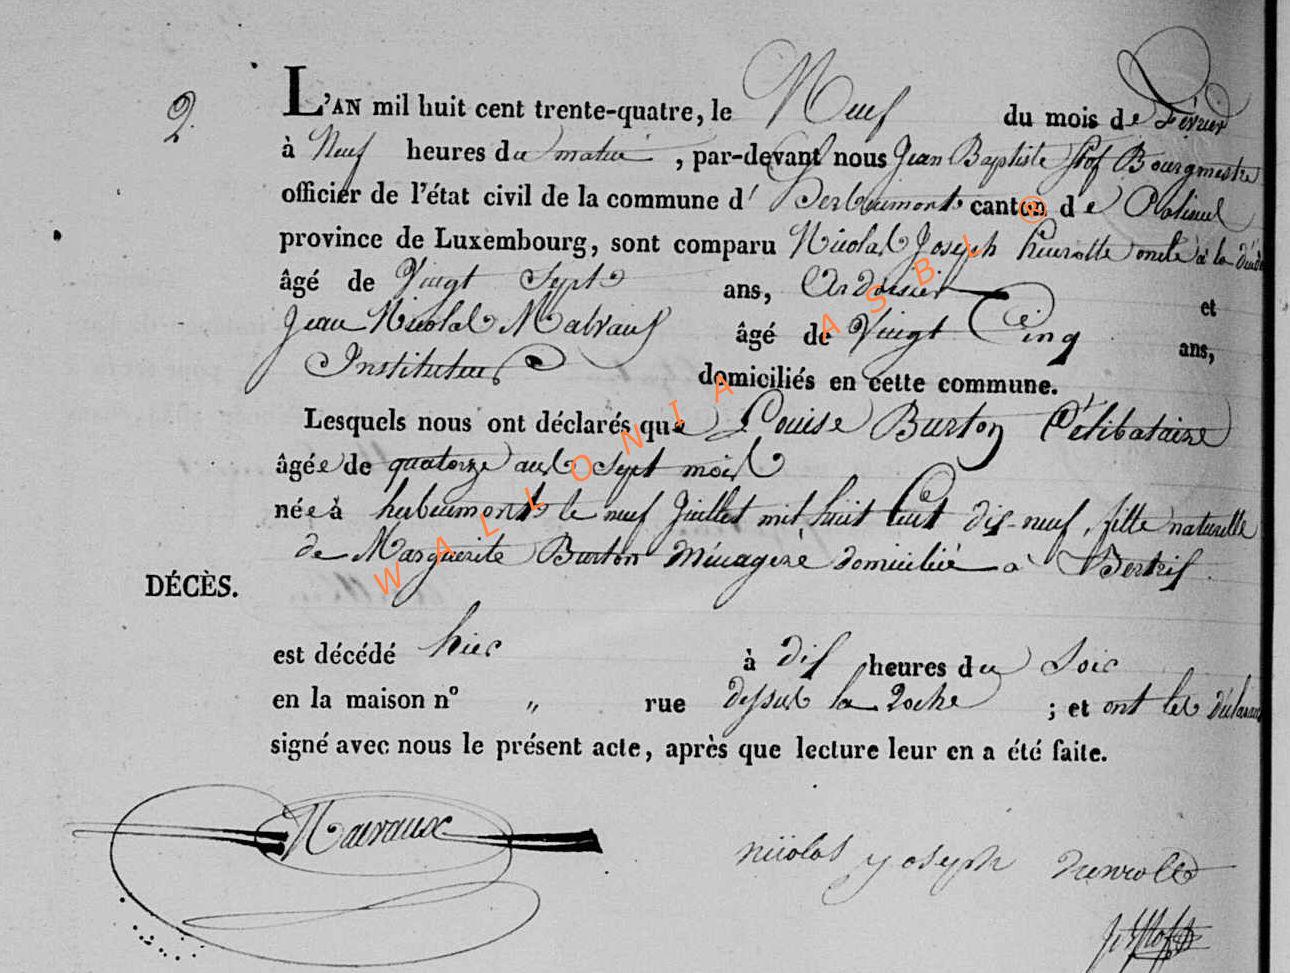 2.
L'AN mil huit cent trente-quatre, le Neuf du mois de Février
à Neuf heures du matin, par-devant nous Jean Baptiste Bourgmestre
officier de l'état civil de la commune d' herbeumont canton de Paliseul
province de Luxembourg, sont comparu Nicolas Joseph oncle à la
âgé de Vingt Sept ans, Ardoisier et
Jean Nicolas Malvaux âgé de Vingt Cinq ans,
Instituteur domiciliés en cette commune.
Lesquels nous ont déclarés que Louise Burton Célibataire
âgée de quatorze ans Sept mois
née à herbeumont le neuf Juillet mil huit Cent dix-neuf, fille naturelle
de Marguerite Burton Ménagère domiciliée à Bertrix
DÉCÈS.
est décédé hier à dix heures du Soir
en la maison n° " rue dessus la Roche ; et ont les
signé avec nous le présent acte, après que lecture leur en a été faite.
nicolas joseph
WALLONIA ASBL ®